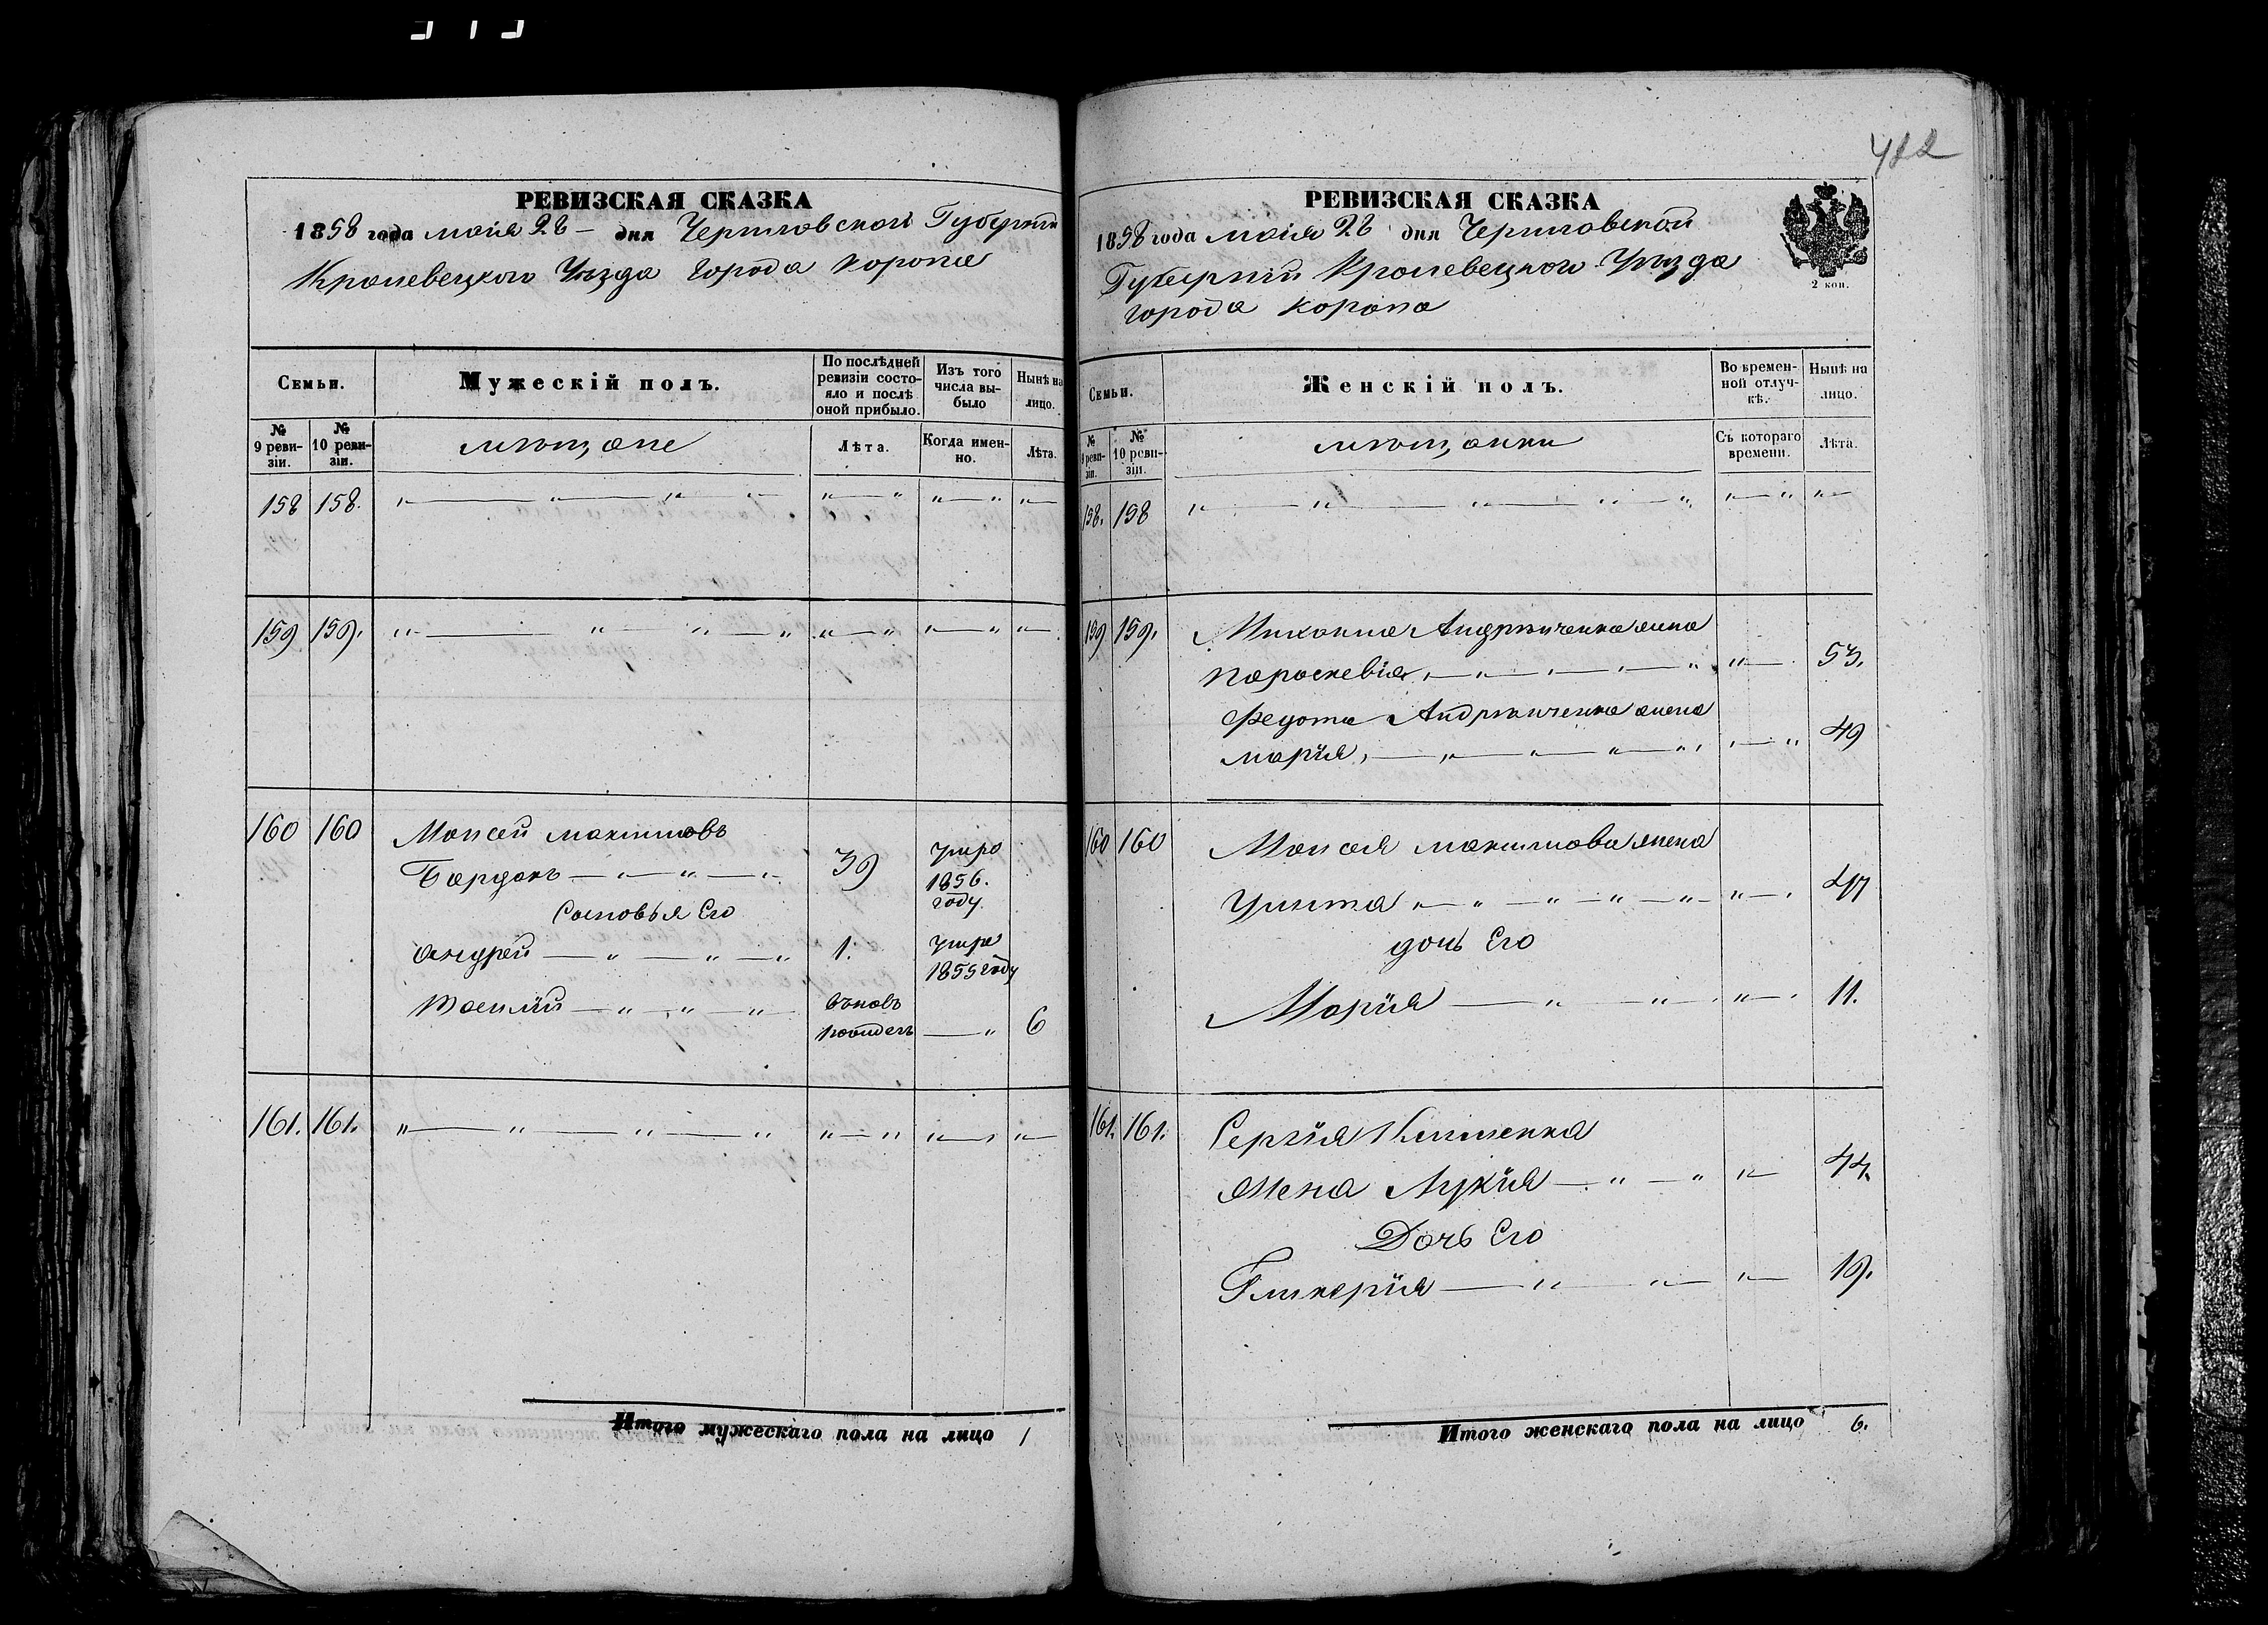 422
РЕВИЗСКАЯ СКАЗКА
1858 года маія 28 - дня Черниговской Губерніи
Кролевецкого Уѣзда Города Коропа
Семьи. Мужескій полъ. По послѣдней ревизіи состояло и послѣ оной прибыло. Изъ того числа выбыло Нынѣ на лицо.
№ 9 ревизіи. № 10 ревизіи. мѣщане Лѣта. Когда именно. Лѣта.
158 158. " " " " " " " "
159 159. " " " " " " " "
160 160 Моисей Максимовъ
Бардакъ 39 умре 1856. году
Сыновья Его
Андрей 1. умре 1855 году
Василій вновь рожденъ " 6
161. 161. " " " " " " " "
Итого мужескаго пола на лицо 1
РЕВИЗСКАЯ СКАЗКА
1858 года маія 28 дня Черниговской
Губерніи Кролевецкого Уѣзда
города Коропа
2 коп.
Семьи. Женскій полъ. Во временной отлучкѣ. Нынѣ на лицо.
№ 9 ревизіи. № 10 ревизіи. мѣщанки Съ котораго времени. Лѣта.
158. 158 " " " " " " " "
159 159. Михаила Андрѣиченка жена
Параскевія " 53.
Федота Андрѣиченка жена
Марія " 49
160 160 Моисея Максимова жена
Улита " 47
дочь Его
Марія " 11.
161. 161. Сергія
жена Лукія " 44.
Дочь Его
Гликерія " 19.
Итого женскаго пола на лицо 6.